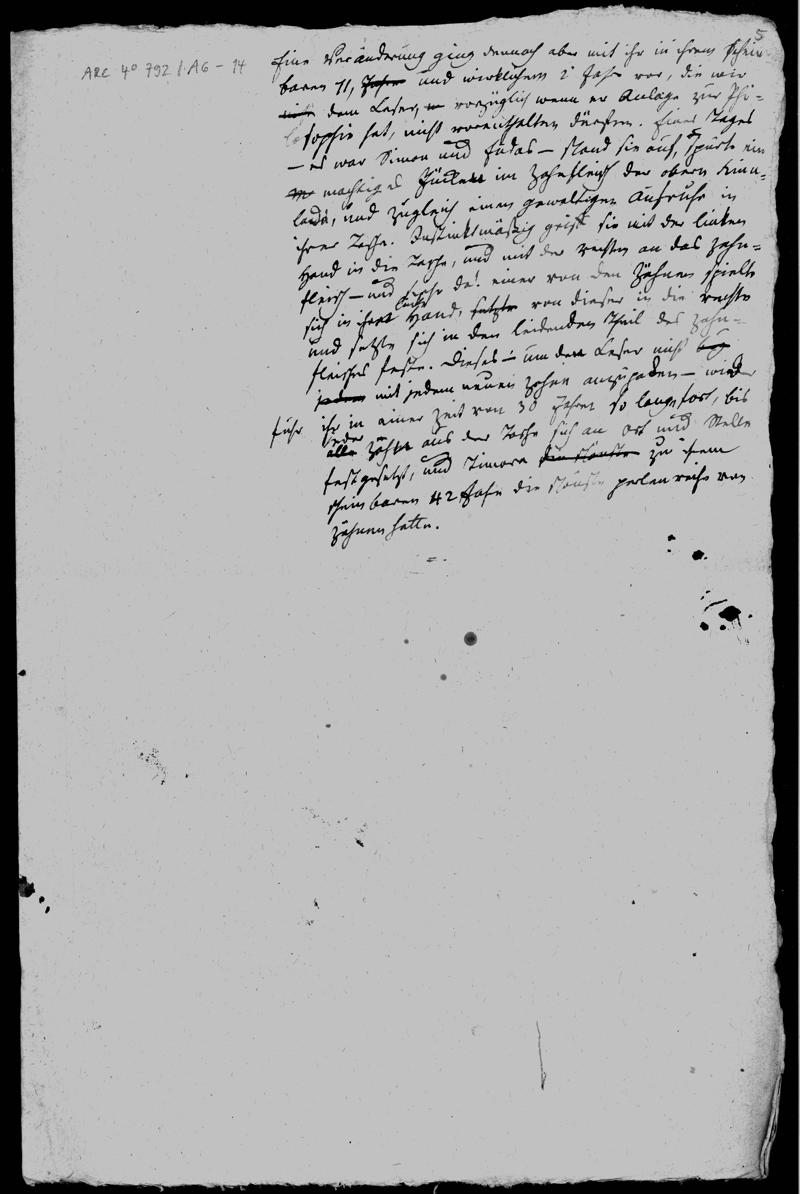 5
ARC 4° 792 / A6 - 14
Eine Veränderung ging dennoch aber mit ihr in ihrem schein-
baren 71, Jahre und wirklichem 2 Jahr vor, die wir
dem Leser, vorzüglich wenn er Anlage zur Phi-
losophie hat, nicht vorenthalten dürfen. Eines Tages
— es war Simon und Judas — stand sie auf, spürte ein
mächtiges Jücken im Zahnfleisch der obern Kinn-
lade, und zugleich einen gewaltigen Aufruhr in
ihrer Tasche. Instinktmäßig griff sie mit der linken
Hand in die Tasche, und mit der rechten an das Zahn-
fleisch — und siehe da! einer von den Zähnen spielte
sich in ihre linke Hand, setzte von dieser in die rechte
und setzte sich in den leidenden Theil des Zahn-
fleisches feste. Dieses — um den Leser nicht bey
jedem mit jedem neuen Zahn anzupaden — wieder
fuhr ihr in einer Zeit von 30 Jahren so lange fort, bis
jeder alle Zähne aus der Tasche sich an Ort und Stelle
festgesetzt, und Timora die schönste zu ihrem
scheinbaren 42 Jahr die schönste Perlenreihe von
Zähnen hatte.